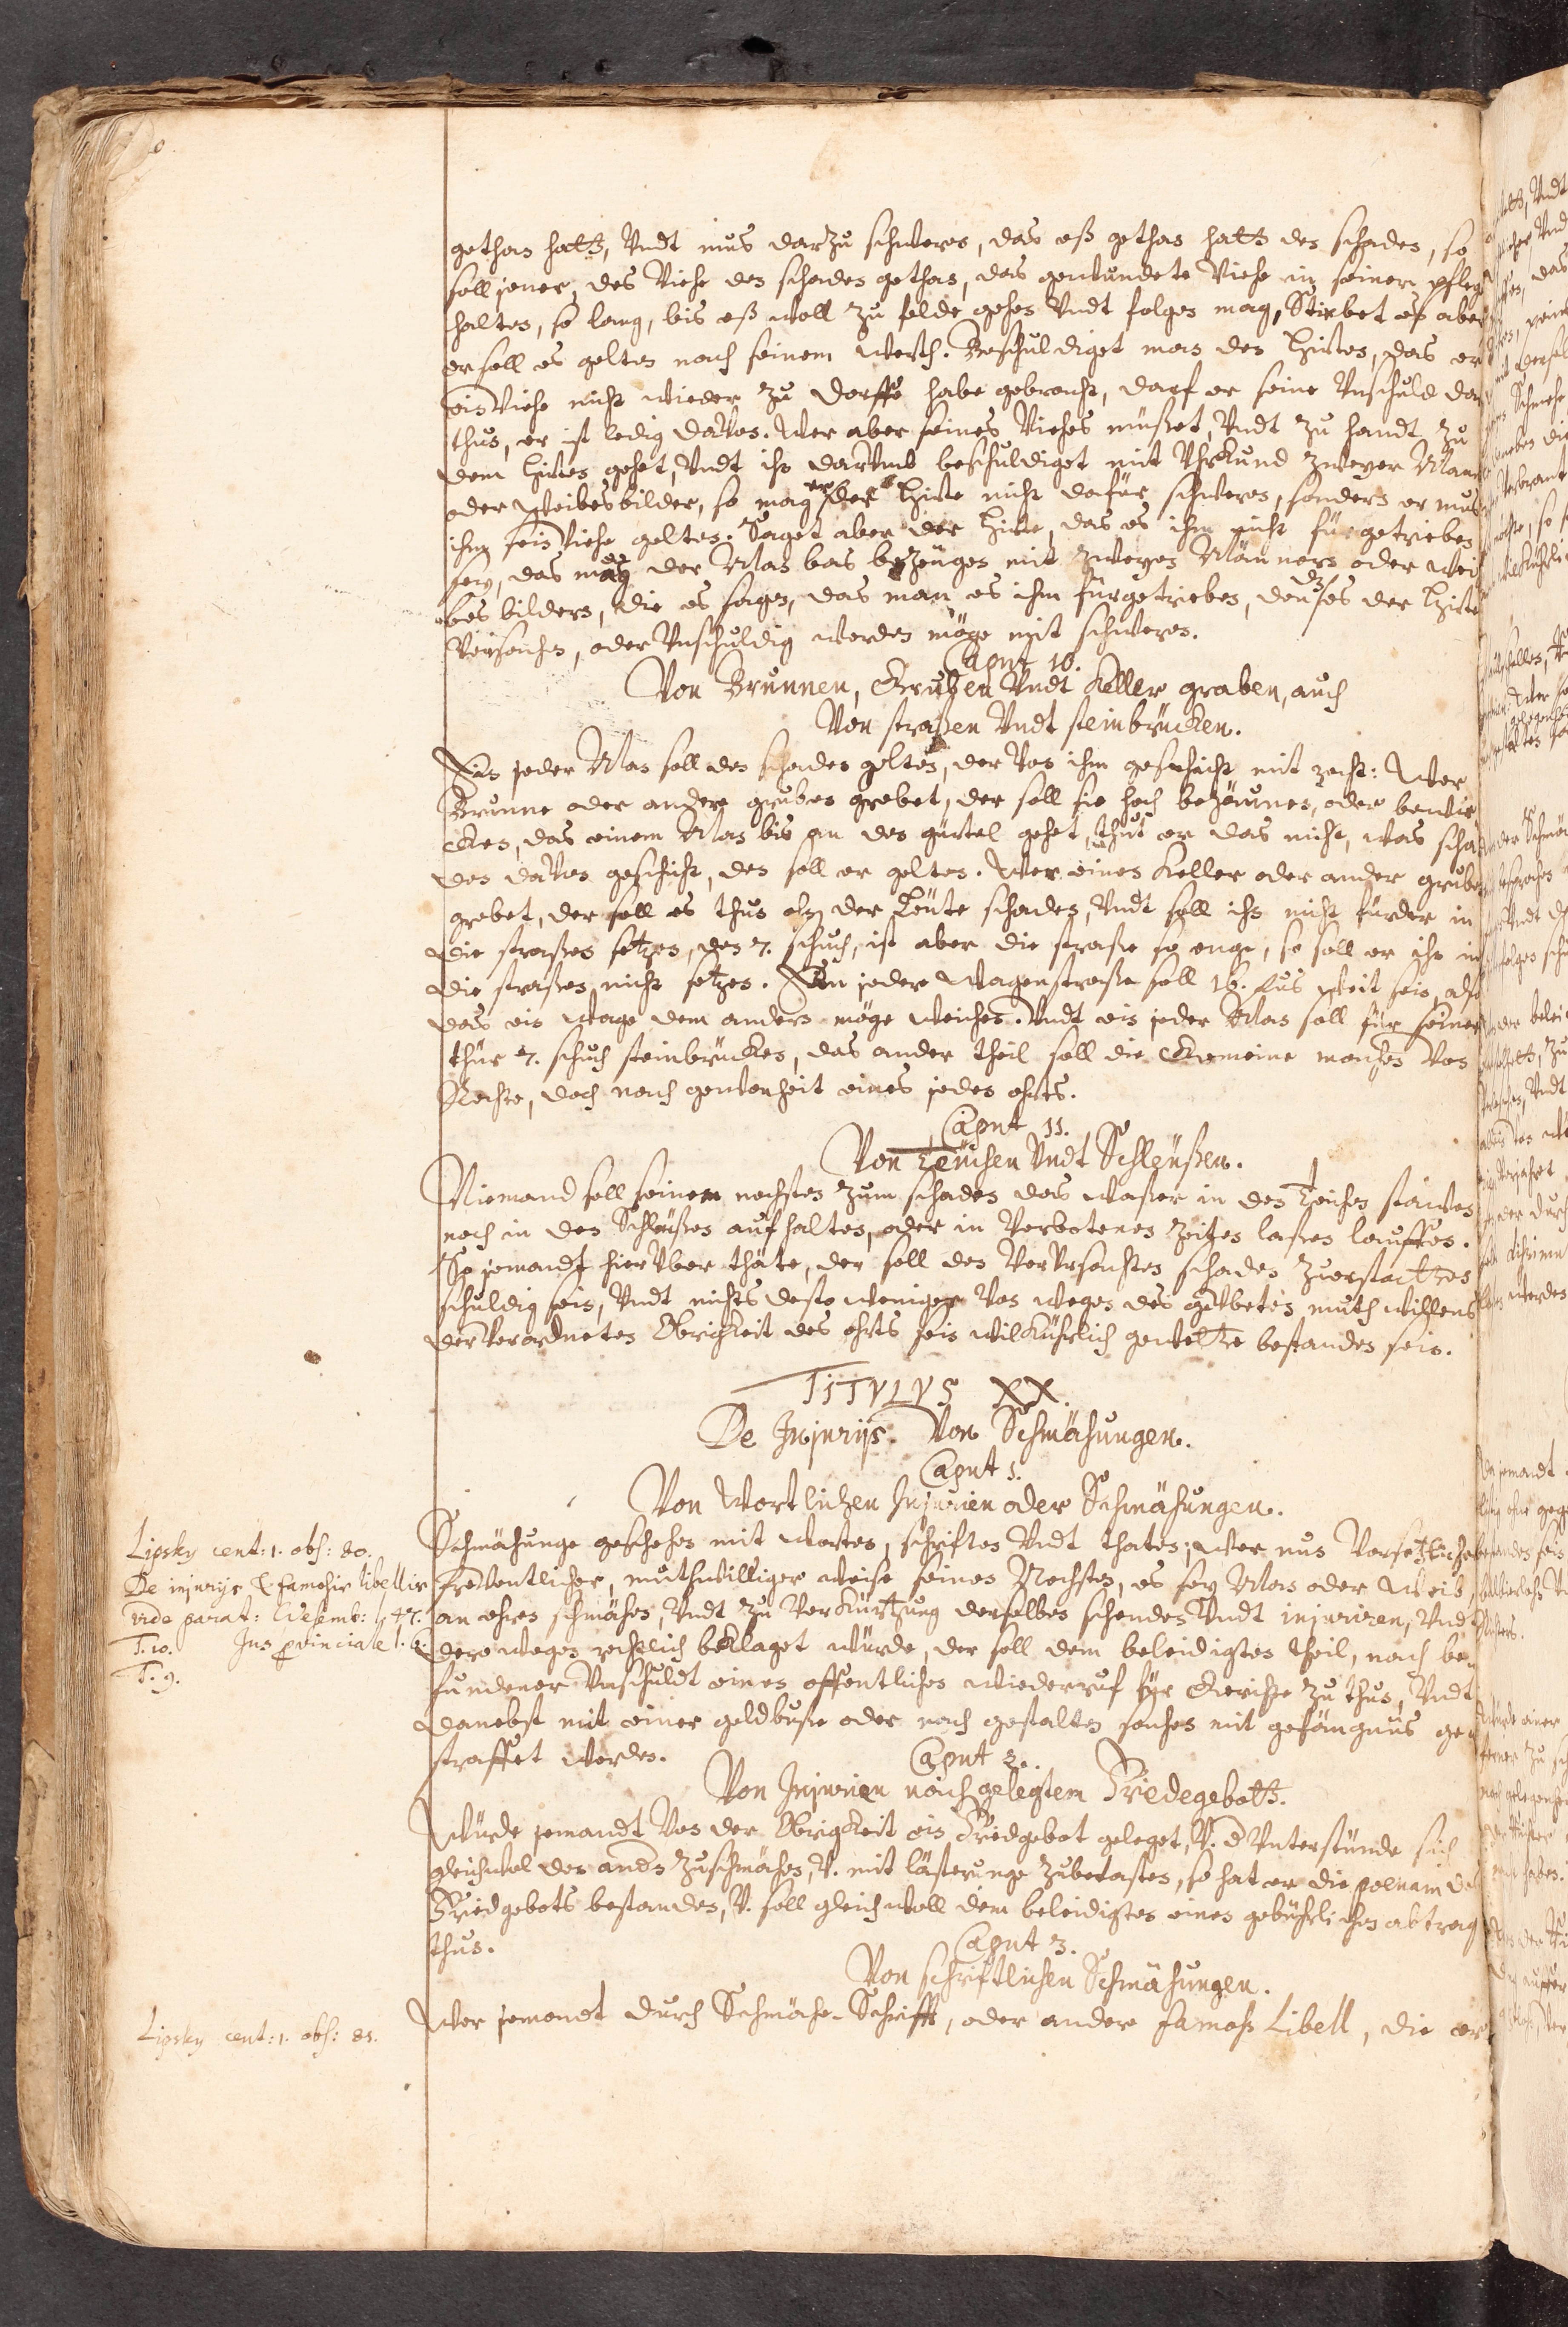 gethan hatt, Vndt mus darzu schweren, das eß gethan hatt den schaden, so
soll jener, des Viehe den schaden gethan, das gewundete Viehe in seiner pfleg
halten, so lang, bis eß woll zu felde gehen Vndt folgen mag, Stirbet es aber
er soll es gelten nach seinem werth. Beschuldiget man den Hirten, das er
ein Viehe nicht wieder zu dorffe habe gebracht, darf er seine Vnschuld da
thun, er ist ledig davon. Wer aber seines Viehes misset, Vndt zu handt zu
dem Hirten gehet, Vndt ihn darumb beschuldiget mit Vhrkund zweyer Man
oder Weibesbilder, so mag der Hirte nicht dafür schweren, sondern er mus
ihm sein Viehe gelten. Saget aber der Hirte, das es ihm nicht fürgetrieben
sey, das mag der Man bas bezeugen mit zweyen Männern oder wei
bes bildern, die es sagen, das man es ihm fürgetrieben, den es der Hirte
Versachen, oder Vnschuldig werden möge mit schweren.
Caput 10.
Von Brunnen, Gruben Vndt Keller graben, auch
Von straßen Vndt steinbrücken.
Ein jeder Man soll den schaden gelten, der Von ihm geschicht mit recht: Wer
Brunne oder andere gruben grebet, der soll sie hoch bezäunen, oder bewir
cken, das einem Man bis an den gürtel gehet, thut er das nicht, was scha
den davon geschicht, den soll er gelten. Wer einen Keller oder ander grube
grebet, der soll es thun ohn der Leute schaden, Vndt soll ihn nicht fürder in
die straßen setzen, den 7. schuch, ist aber die straße so enge, so soll er ihn in
die straßen nicht setzen. Ein jeder Wagenstraße soll 16. fus weit sein, also
das ein wage dem andern möge weichen. Vndt ein jeder Man soll für seiner
thür 7. schuch steinbrücken, das ander theil soll die Gemeine machen Von
Rechte, doch nach gewonheit eines jeden ohrts.
Caput 11.
Von Teuchen Vndt Schleußen.
Niemand soll seinem nechsten zum schaden das waßer in den Teichen stawen
noch in den Schleußen aufhalten, oder in Verbotenen Zeiten laßen lauffen.
So jemandt hierüber thäte, der soll den Verursachten schaden zuerstatten
schuldig sein, Vndt nichts desto weniger Von wegen des geübeten muthwillens
der Verordneten Obrigkeit des ohrts sein wilkührlich gewette bestanden sein.
TITVLVS XX.
De Injurijs. Von Schmähungen.
Caput 1.
Von Wortlichen Injurien oder Schmähungen.
Lipsky cent: 1. obs: 80.
De injurijs & famosis libellis
vide parat: Wesemb: l. 47.
T. 10. Jus provinciale l. 6.
T. 9.
Schmähunge geschehen mit worten, schriften Vndt thaten; Wer nun Vorsetzlicher
freventlicher, muthwilliger weise seinen Nechsten, es sey Man oder Weib,
an ehren schmähen, Vndt zu Verkürtzung derselben schenden Vndt injuriren, Vndt
derowegen rechtlich beklaget würde, der soll dem beleidigten theil, nach be
fundener Vnschuldt einen offentlichen wiederruf für Gerichte zu thun, Vndt
danebst mit einer geldbuße oder nach gestalten sachen mit gefängnus ge
straffet werden.
Caput 2.
Von Injurien nach gelegtem Friedegebott.
Würde jemandt Von der Obrigkeit ein Friedgebot geleget, V. d Vnterstünde sich
gleichwol den andn zuschmähen, V. mit lästerunge zubetasten, so hat er die poenam des
Friedgebots bestanden, V. soll gleichwoll dem beleidigten einen gebührlichen abtrag
thun.
Caput 3.
Von schriftlichen Schmähungen.
Lipsky cent: 1. obs: 81.
Wer jemandt durch Schmähe-Schrifft, oder andere famoß Libell, die er